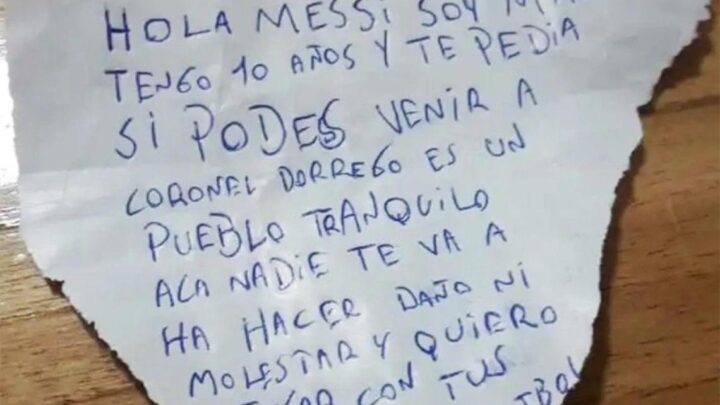 HOLA MESSI SOY
TENGO 10 AÑOS Y TE PEDIA
SI PODES VENIR A
CORONEL DORREGO ES UN
PUEBLO TRANQUILO
ACA NADIE TE VA A
HA HACER DAÑO NI
MOLESTAR Y QUIERO
CON TUS